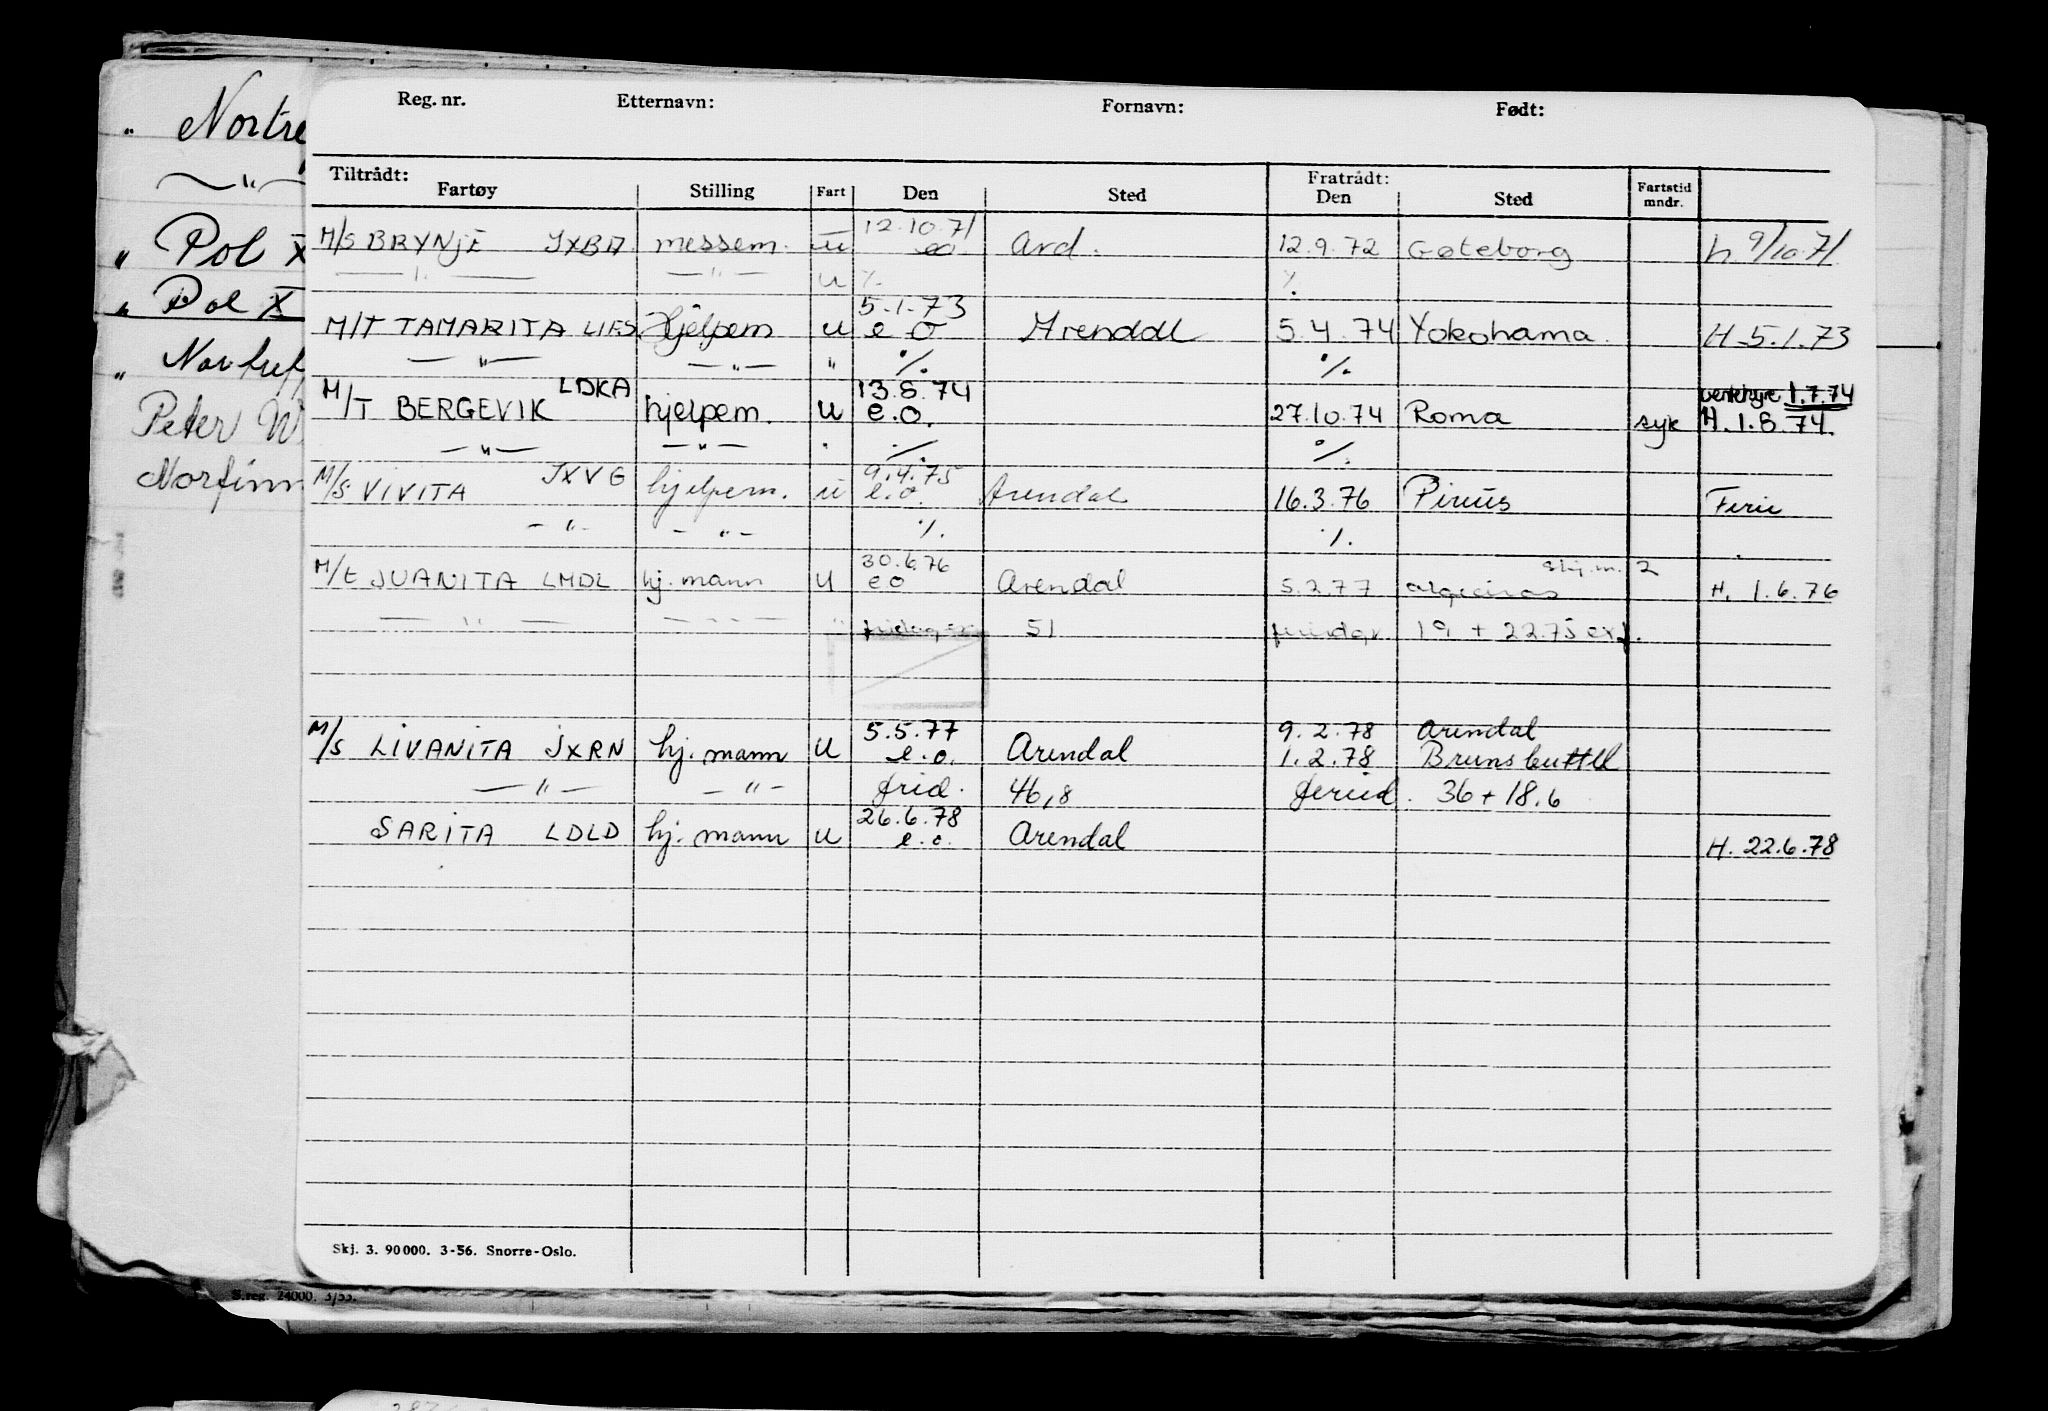 " Nortre
— " —
" Pol X
" Pol X
" Nortref
Peter W
Norfinn
Reg. nr. Etternavn: Fornavn: Født:
Tiltrådt: Fratrådt:
Fartøy Stilling Fart Den Sted Den Sted Fartstid mndr.
12.10.71
M/S BRYNJE JXBD. messem. u eo. Ard. 12.9.72 Gøteborg h. 9/10.71
— " — — " — u %. %.
5.1.73
M/T TAMARITA LIES Hjelpem u e o Arendal 5.4.74 Yokohama. H. 5.1.73
— " — — " — " %. %.
LDKA 13.8.74 1.7.74
M/T BERGEVIK hjelpem. u e.o. 27.10.74 Roma syk H. 1.8.74.
— " — — " — " %. %.
JXVG 9.4.75
M/S VIVITA hjelpem. u e.o. Arendal 16.3.76 Pirius Ferie
— " — — " — %. %.
30.6.76 2
M/t JUANITA LMDL hj. mann u eo Arendal 5.2.77 algeciras H. 1.6.76
— " — — " — " 51 feriedgr. 19 + 22.75
5.5.77 9.2.78 Arendal
M/S LIVANITA JXRN hj. mann u e.o. Arendal 1.2.78 Brunsbuttel
— " — — " — frid. 46,8 feried. 36 + 18.6
26.6.78
SARITA LDLD hj. mann u e.o. Arendal H. 22.6.78
Skj. 3. 90000. 3-56. Snorre-Oslo.
S.reg. 24000. 3/53.